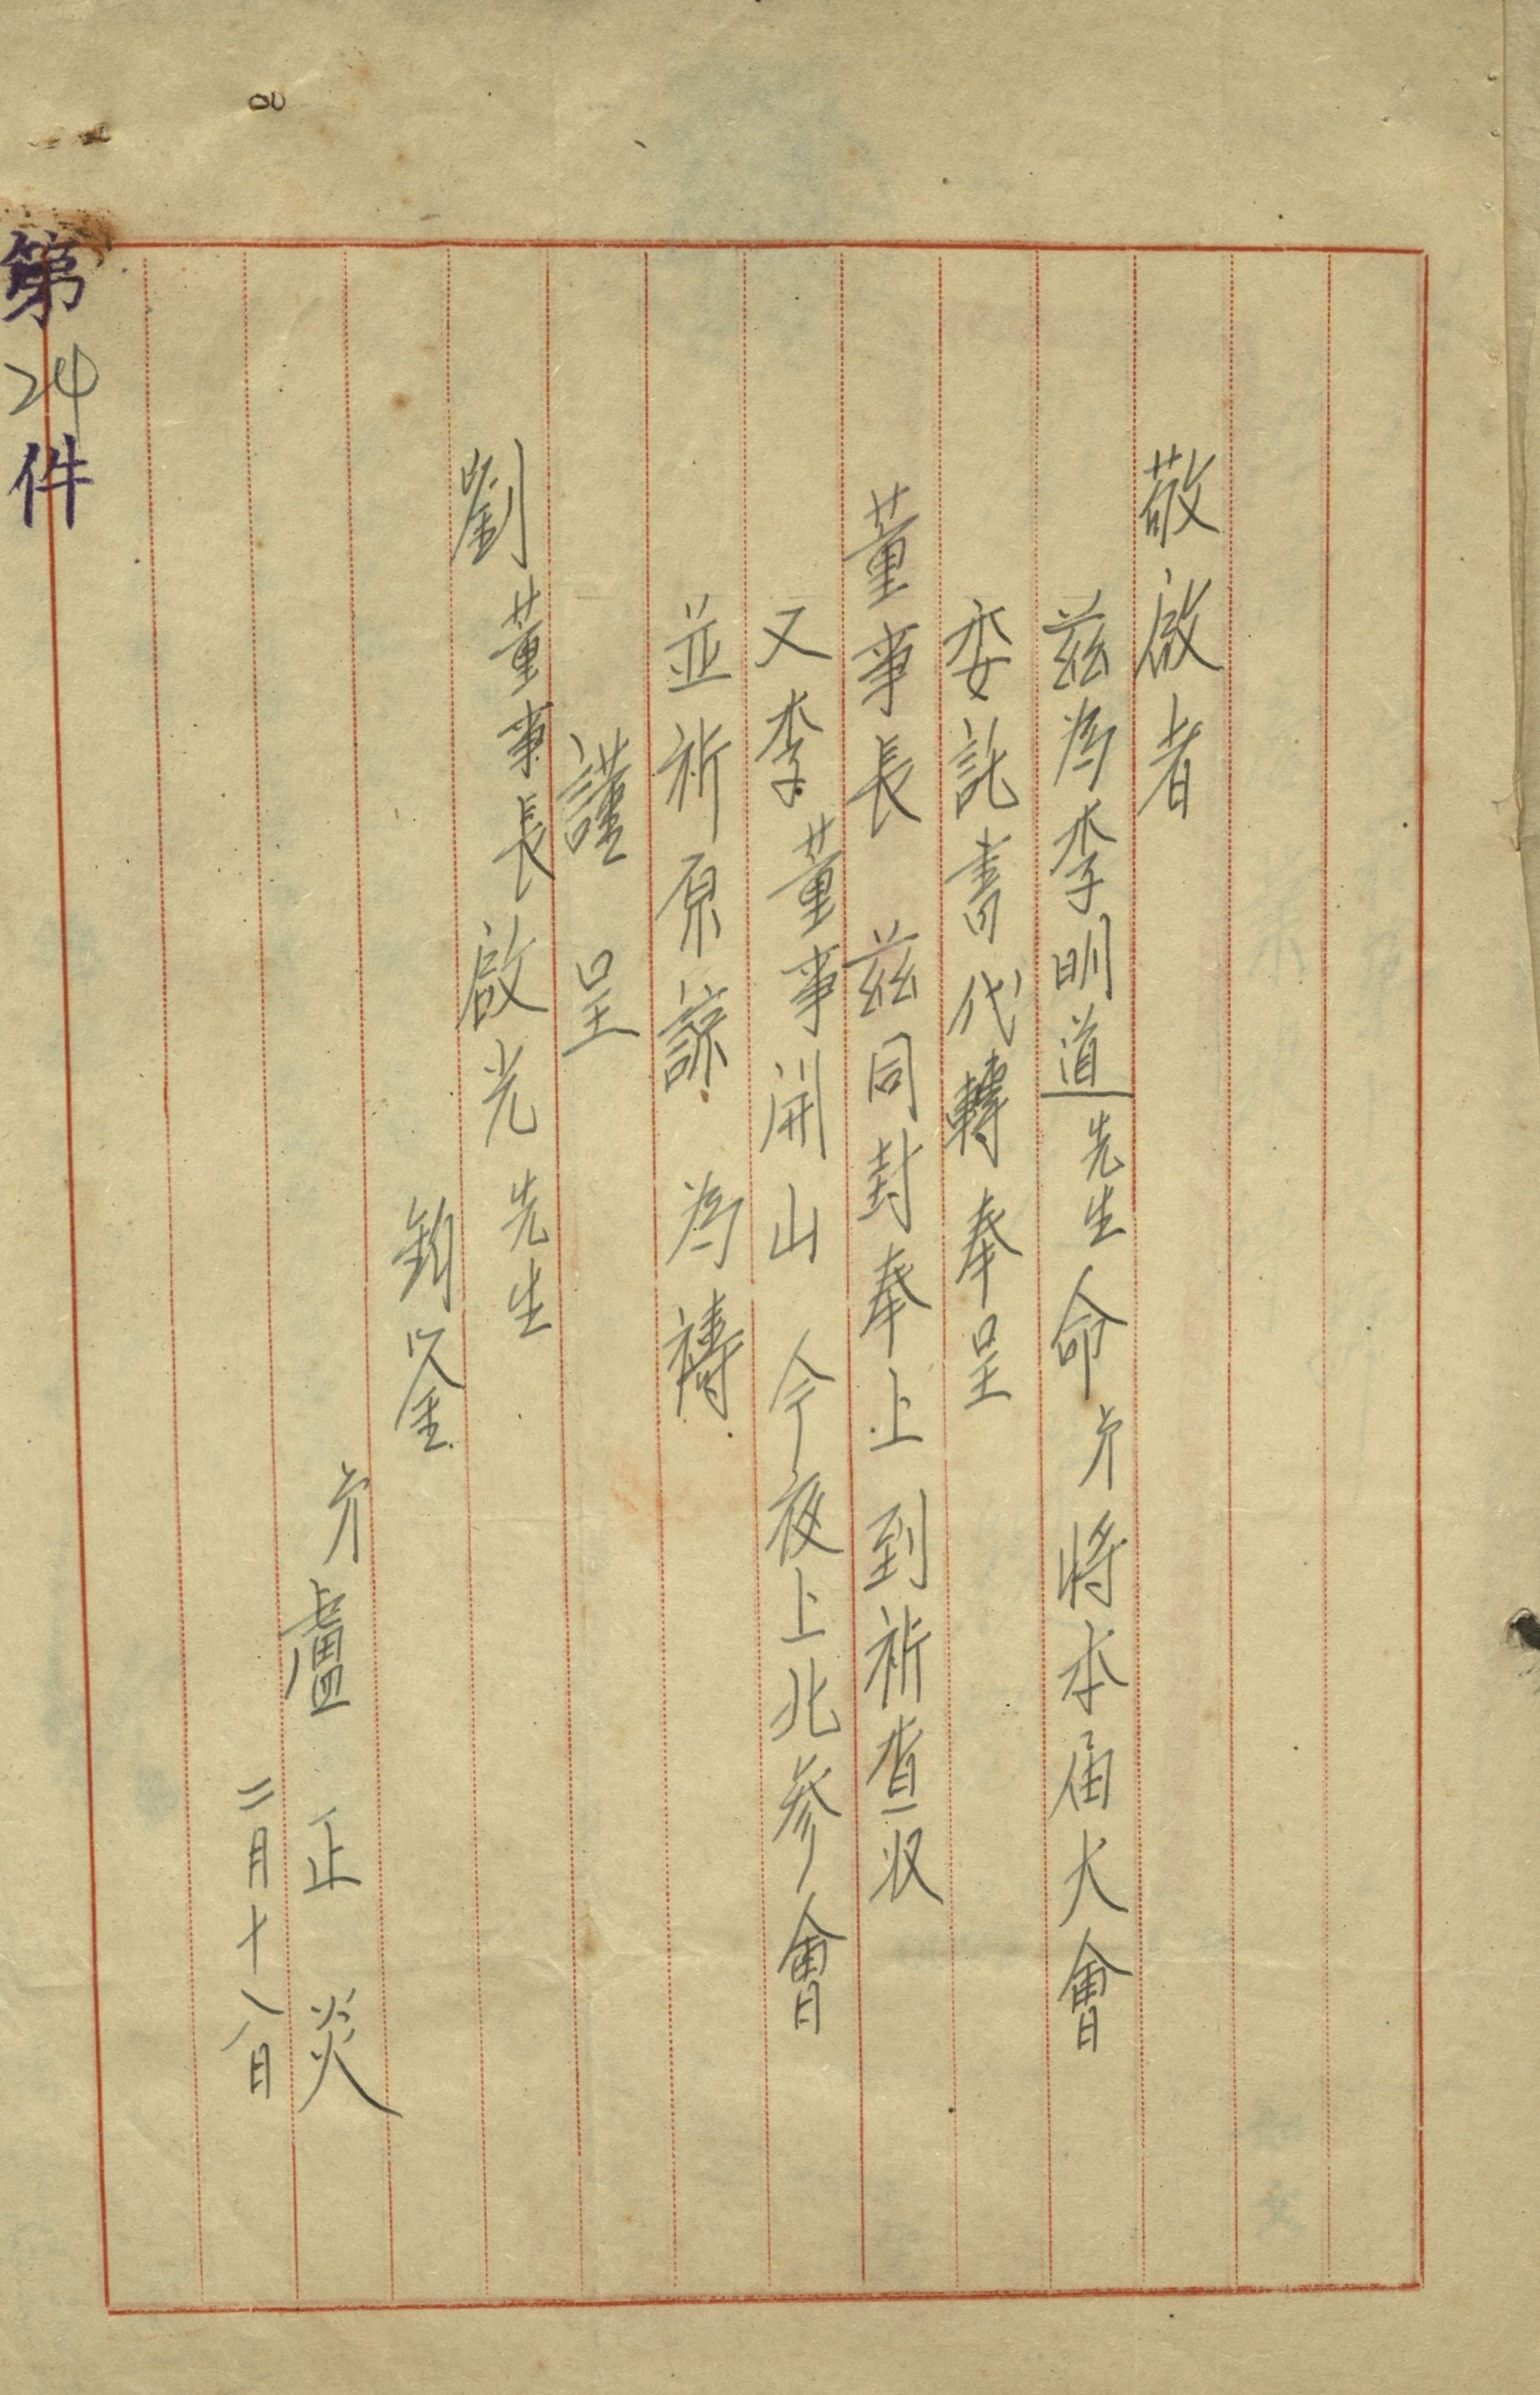 敬啟者
茲為李明道先生命弟將本屆大會
委託書代轉奉呈
董事長 茲同封奉上 到祈查收
又李董事開山 今夜上北參會
並祈原諒 為禱
謹呈
劉董事長啟光先生
鈞鑒
弟盧正炎
二月十八日
第24件